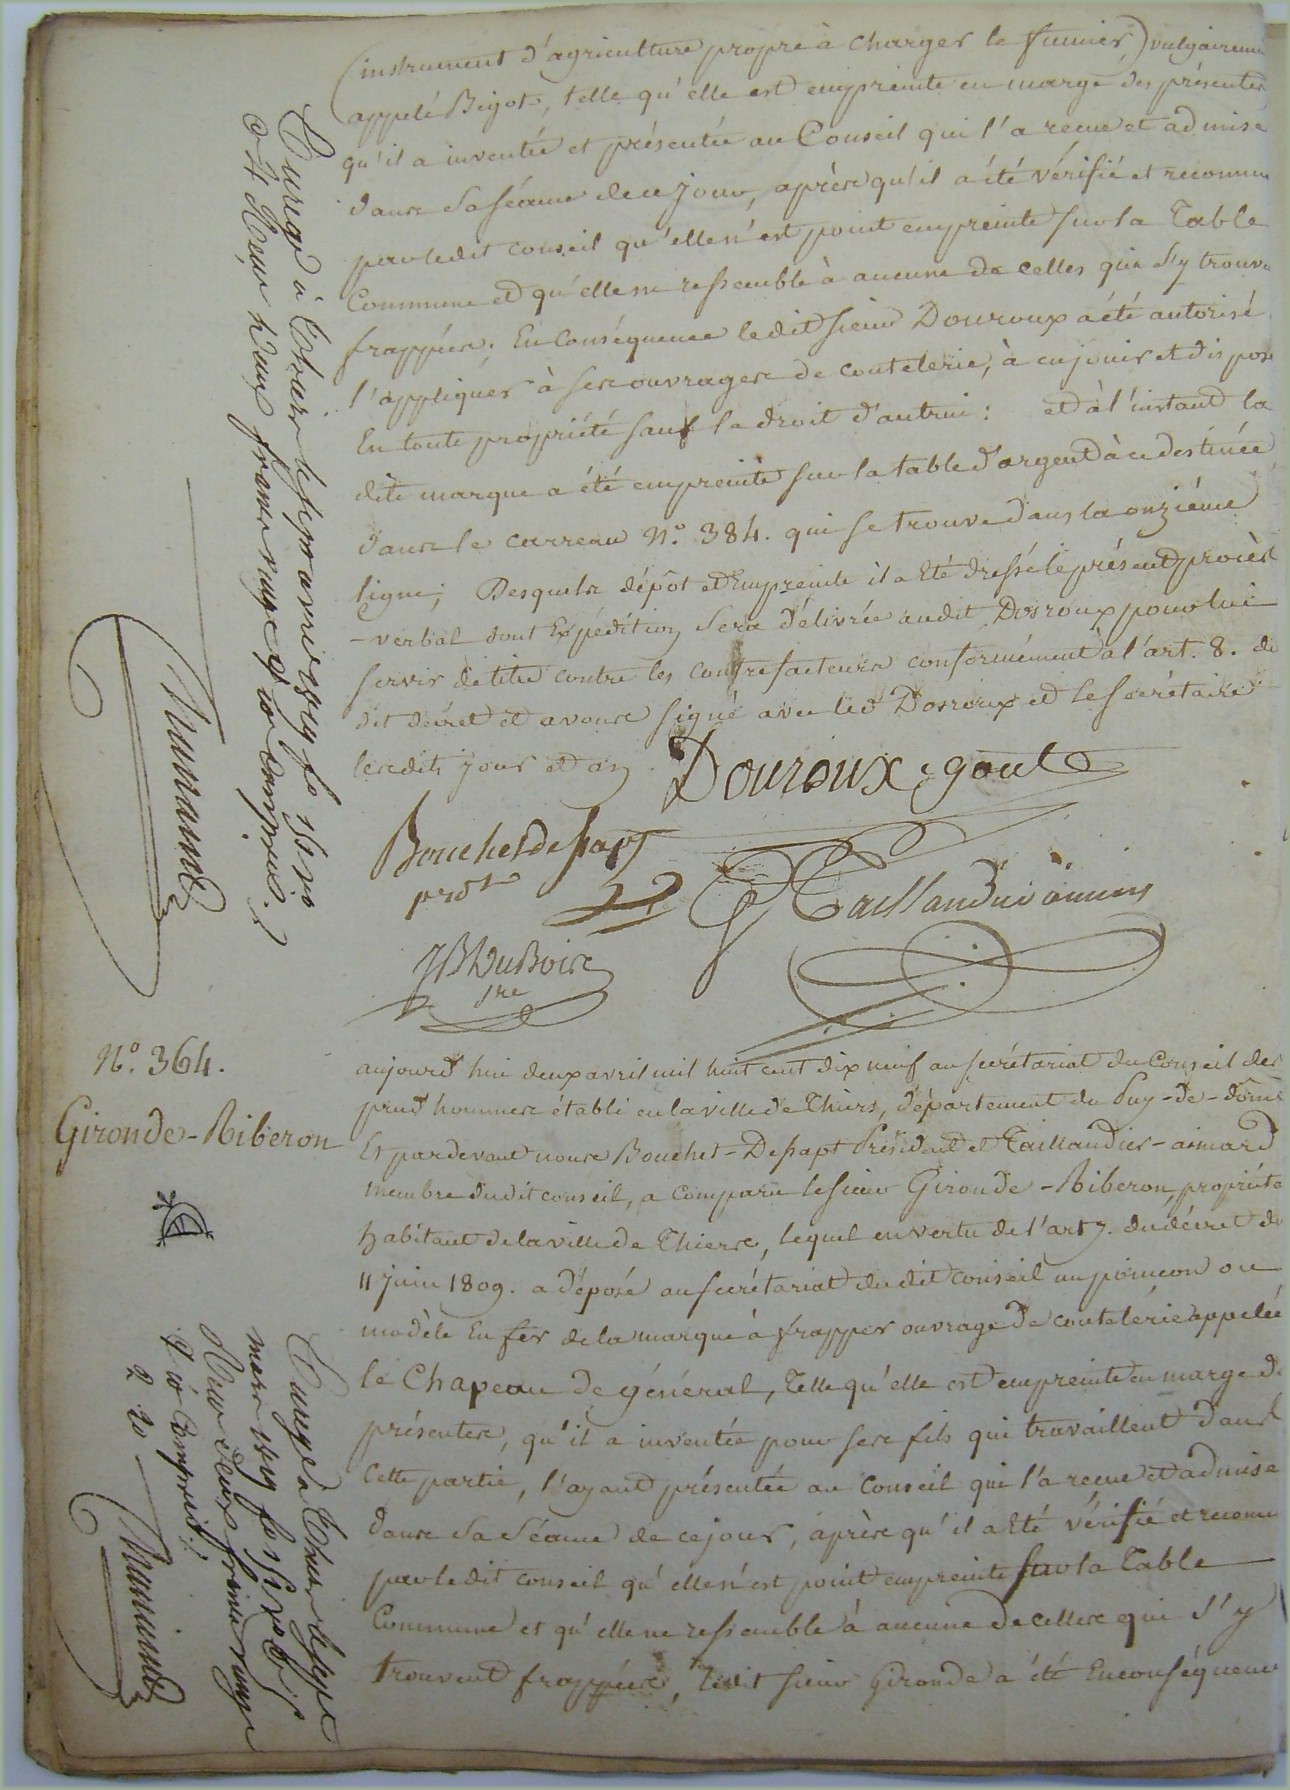 (instrument d'agriculture propre à charger le fumier,) vulgairem
appelé Bigot, telle qu'elle est empreinte en marge des présentes
qu'il a inventée et présentée au Conseil qui l'a recue et admise
dans sa séance de ce jour, après qu'il a été vérifié et reconnu
par ledit conseil qu'elle n'est point empreinte sur la Table
Commune et qu'elle ne ressemble à aucune de celles qui s'y trouve
frappées; En Conséquence ledit sieur Douroux a été autorisé
l'appliquer à ses ouvrages de coutelerie, à en jouir et dispose
En toute propriété sauf le droit d'autrui : et à l'instant la
dite marque a été empreinte sur la table d'argent à ce destinée
dans le carreau N.° 384. qui se trouve dans la onzième
ligne; Desquels dépôt et Empreinte il a Eté dressé le présent procès
-verbal dont Expédition sera délivrée audit Dosroux pour lui
servir de titre contre les contrefacteurs conformément à l'art. 8. du
dit décret et avons signé avec led. Dosroux et le secrétaire
lesdits jour et an.
Douroux goute
Bouchet Dessapt
prdt
Taillandier aimard
JB DuBois
sre
Enregé à Thiers le sept avril 1819 fo
Reçu deux francs vingt c. compris.
N.° 364.
Gironde-Riberon
aujourd'hui deux avril mil huit cent dix neuf au secrétariat du Conseil des
prud'hommes établi en la ville de Thiers, département du Puy-de-dôme
Et pardevant nous Bouchet-Dessapt Président et Taillandier-aimard
membre dudit conseil, a Comparu le sieur Gironde-Riberon, propriéta
habitant de la ville de Thiers, lequel en vertu de l'art 7. du décret du
11 juin 1809. a déposé au secrétariat dudit conseil un poincon ou
modèle En fer de la marque à frapper ouvrage de coutelérie appelée
le Chapeau de général, Telle qu'elle est empreinte en marge d
présentes, qu'il a inventée pour ses fils qui travaillent dans
Cette partie, l'ayant présentée au Conseil qui l'a recue et admise
dans sa séance de ce jour, après qu'il a Eté vérifié et reconnu
par ledit conseil qu'elle n'est point empreinte sur la Table
Commune et qu'elle ne ressemble à aucune de celles qui s'y
trouvent frappées, ledit sieur Gironde a été En conséquence
Enregé à Thiers le sept